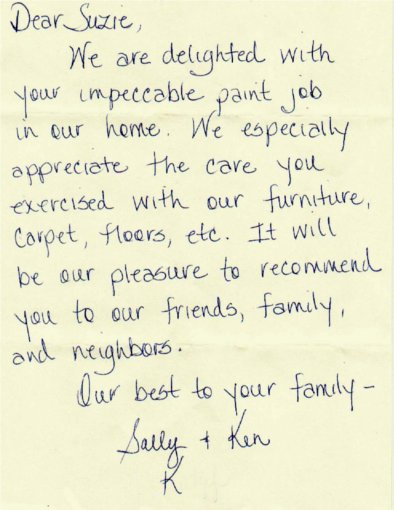 Dear Suzie,
We are delighted with
your impeccable paint job
in our home. We especially
appreciate the care you
exercised with our furniture,
carpet, floors, etc. It will
be our pleasure to recommend
you to our friends, family,
and neighbors.
Our best to your family -
Sally + Ken
K